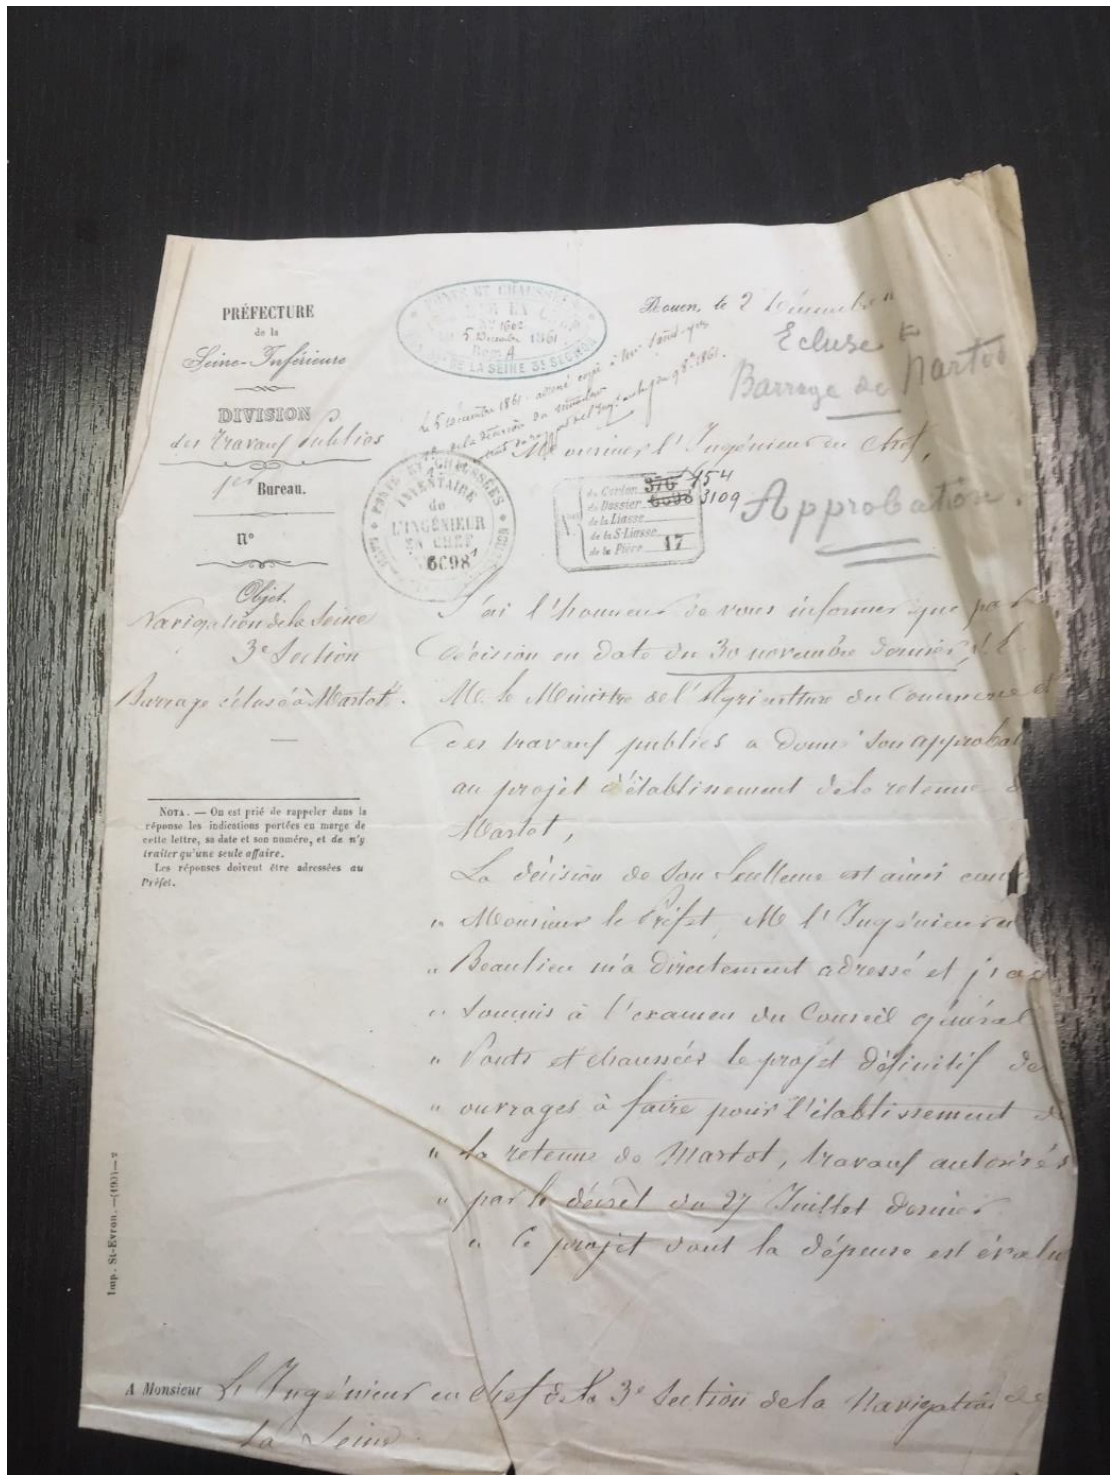 PRÉFECTURE
de la
Seine-Inférieure
DIVISION
des Travaux Publics
1er Bureau.
N°
Objet.
Navigation de la Seine
3e Section
Barrage éclusé à Martot.
NOTA. — On est prié de rappeler dans la
réponse les indications portées en marge de
cette lettre, sa date et son numéro, et de n'y
traiter qu'une seule affaire.
Les réponses doivent être adressées au
Préfet.
Imp. St-Evron.
PONTS ET CHAUSSÉES
N° 1602
5 Décembre 1861
DE LA SEINE 3e SECTION
Rouen, le 2 Décembre
Ecluse et
Barrage de Martot
le 5 Décembre 1861
de la décision du
Monsieur l'Ingénieur en Chef,
PONTS ET CHAUSSÉES
INVENTAIRE
de
L'INGÉNIEUR
EN CHEF
6098
du Carton 376 154
du Dossier 6098 3109
de la Liasse
de la S-Liasse
de la Pièce 17
Approbation.
J'ai l'honneur de vous informer que par
décision en date du 30 novembre dernier, S. E.
M. le Ministre de l'Agriculture du Commerce et
des travaux publics a donné son approbat
au projet d'établissement de la retenue d
Martot,
La décision de Son Excellence est ainsi
" Monsieur le Préfet, M. l'Ingénieur
" Beaulieu m'a directement adressé et j'ai
" soumis à l'examen du Conseil général
" Ponts et chaussées le projet définitif de
" ouvrages à faire pour l'établissement d
" la retenue de Martot, travaux autorisés
" par le décret du 27 Juillet dernier.
" Ce projet dont la dépense est évalu
A Monsieur L'Ingénieur en chef de la 3e Section de la Navigation de
la Seine